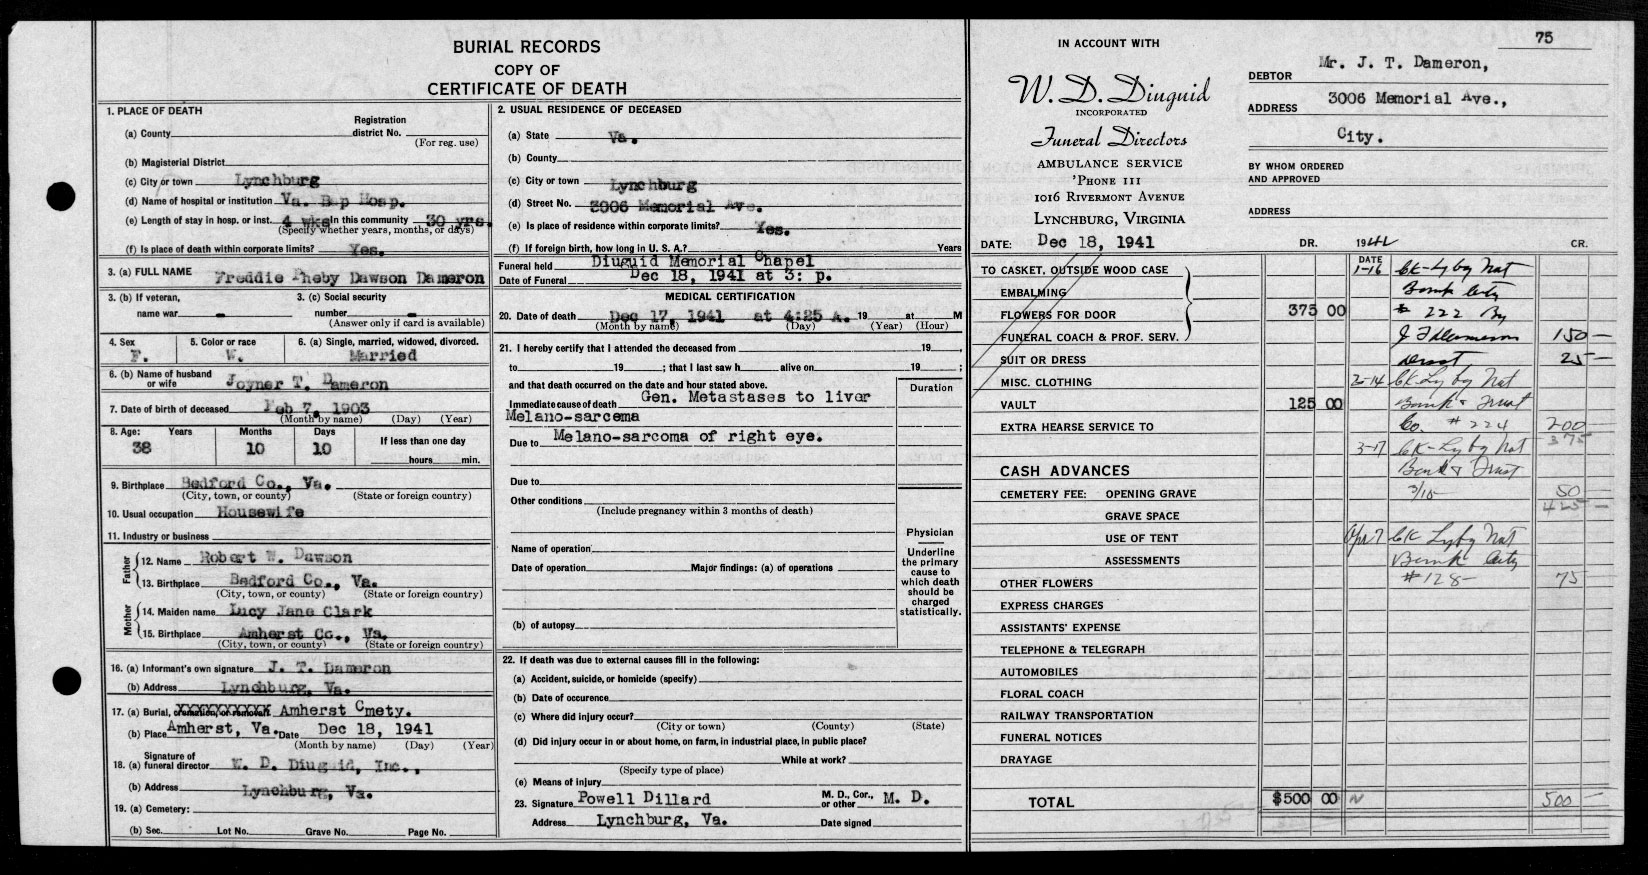 BURIAL RECORDS
COPY OF
CERTIFICATE OF DEATH
1. PLACE OF DEATH
(a) County
Registration district No.
(For reg. use)
(b) Magisterial District
(c) City or town Lynchburg
(d) Name of hospital or institution Va. Bap Hosp.
(e) Length of stay in hosp. or inst. 4 wks In this community 30 yrs.
(Specify whether years, months, or days)
(f) Is place of death within corporate limits? Yes.
3. (a) FULL NAME Freddie Pheby Dawson Dameron
3. (b) If veteran, name war -
3. (c) Social security number -
(Answer only if card is available)
4. Sex F.
5. Color or race W.
6. (a) Single, married, widowed, divorced. Married
6. (b) Name of husband or wife Joyner T. Dameron
7. Date of birth of deceased Feb 7, 1903
(Month by name) (Day) (Year)
8. Age: Years 38 Months 10 Days 10 If less than one day hours min.
9. Birthplace Bedford Co., Va.
(City, town, or county) (State or foreign country)
10. Usual occupation Housewife
11. Industry or business
Father
12. Name Robert W. Dawson
13. Birthplace Bedford Co., Va.
(City, town, or county) (State or foreign country)
Mother
14. Maiden name Lucy Jane Clark
15. Birthplace Amherst Co., Va.
(City, town, or county) (State or foreign country)
16. (a) Informant's own signature J. T. Dameron
(b) Address Lynchburg, Va.
17. (a) Burial, cremation, or removal XXXXXXXXXX Amherst Cmety.
(b) Place Amherst, Va. Date Dec 18, 1941
(Month by name) (Day) (Year)
18. (a) Signature of funeral director W. D. Diuguid, Inc.,
(b) Address Lynchburg, Va.
19. (a) Cemetery:
(b) Sec. Lot No. Grave No. Page No.
2. USUAL RESIDENCE OF DECEASED
(a) State Va.
(b) County
(c) City or town Lynchburg
(d) Street No. 3006 Memorial Ave.
(e) Is place of residence within corporate limits? Yes.
(f) If foreign birth, how long in U. S. A.? Years
Funeral held Diuguid Memorial Chapel
Date of Funeral Dec 18, 1941 at 3: p.
MEDICAL CERTIFICATION
20. Date of death Dec 17, 1941 at 4:25 A. 19 at M
(Month by name) (Day) (Year) (Hour)
21. I hereby certify that I attended the deceased from 19 ,
to 19 ; that I last saw h alive on 19 ;
and that death occurred on the date and hour stated above.
Duration
Immediate cause of death Gen. Metastases to liver
Melano-sarcema
Due to Melano-sarcoma of right eye.
Due to
Other conditions
(Include pregnancy within 3 months of death)
Name of operation
Date of operation Major findings: (a) of operations
(b) of autopsy
Physician
Underline the primary cause to which death should be charged statistically.
22. If death was due to external causes fill in the following:
(a) Accident, suicide, or homicide (specify)
(b) Date of occurence
(c) Where did injury occur?
(City or town) (County) (State)
(d) Did injury occur in or about home, on farm, in industrial place, in public place?
While at work?
(Specify type of place)
(e) Means of injury
23. Signature Powell Dillard M. D., Cor., or other M. D.
Address Lynchburg, Va. Date signed
75
IN ACCOUNT WITH
W. D. Diuguid
INCORPORATED
Funeral Directors
AMBULANCE SERVICE
'PHONE 111
1016 RIVERMONT AVENUE
LYNCHBURG, VIRGINIA
DEBTOR Mr. J. T. Dameron,
ADDRESS 3006 Memorial Ave.,
City.
BY WHOM ORDERED AND APPROVED
ADDRESS
DATE: Dec 18, 1941 DR. 1942 CR.
DATE
TO CASKET, OUTSIDE WOOD CASE 1-16 CK-Lybg Nat
EMBALMING Bank City
FLOWERS FOR DOOR 375 00 # 222 By
FUNERAL COACH & PROF. SERV. J T Dameron 150 —
SUIT OR DRESS 25 —
MISC. CLOTHING 2-14 CK-Lybg Nat
VAULT 125 00 Bank & Trust
EXTRA HEARSE SERVICE TO Co. # 224 200
375
3-17 CK-Lybg Nat
CASH ADVANCES Bank & Trust
CEMETERY FEE: OPENING GRAVE 3/15 50
GRAVE SPACE 425 —
USE OF TENT Apr 7 CK Lybg Nat
ASSESSMENTS Bank City
OTHER FLOWERS #128- 75
EXPRESS CHARGES
ASSISTANTS' EXPENSE
TELEPHONE & TELEGRAPH
AUTOMOBILES
FLORAL COACH
RAILWAY TRANSPORTATION
FUNERAL NOTICES
DRAYAGE
TOTAL $500 00 500 —